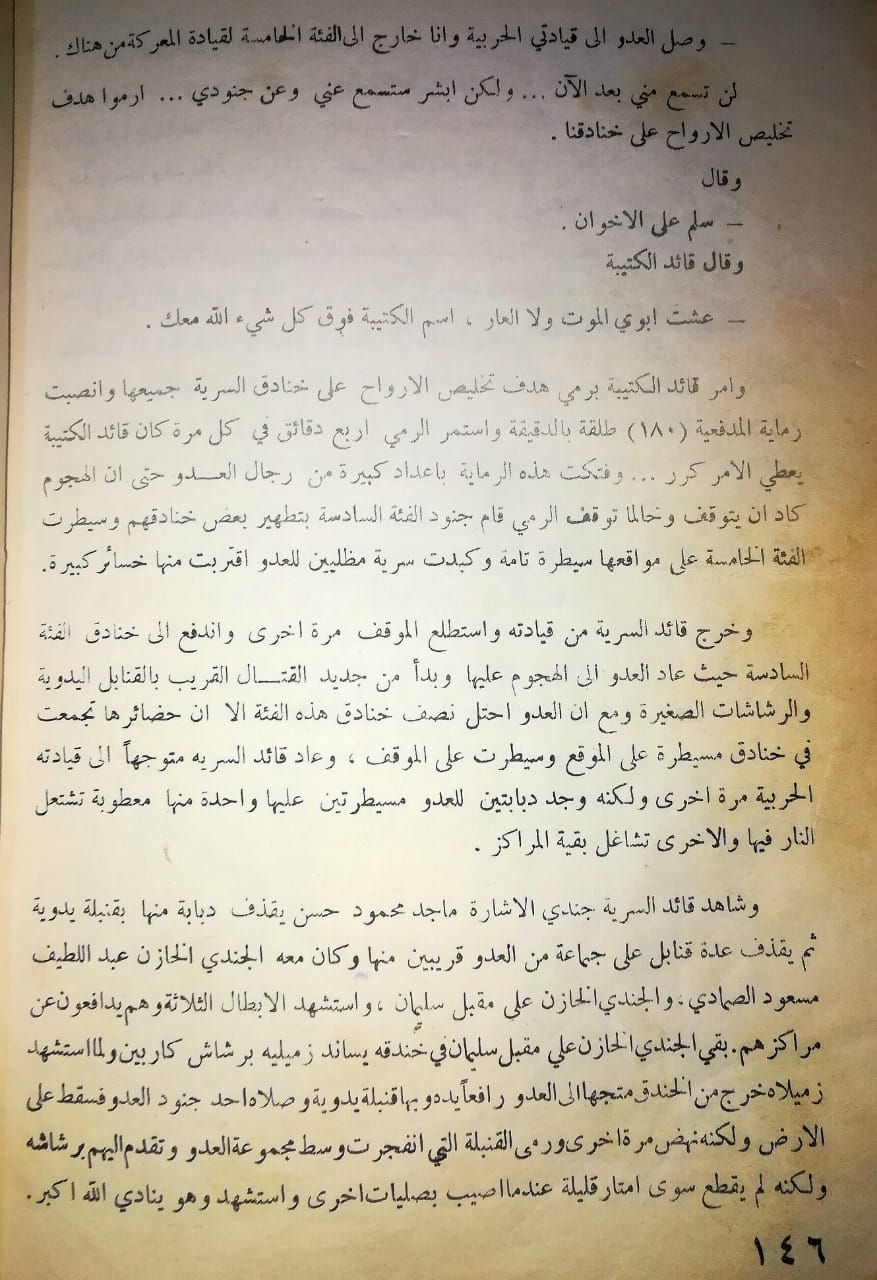 – وصل العدو الى قيادتي الحربية وانا خارج الى الفئة الخامسة لقيادة المعركة من هناك .
لن تسمع مني بعد الآن ... ولكن ابشر ستسمع عني وعن جنودي ... ارموا هدف
تخليص الارواح على خنادقنا .
وقال
– سلم على الاخوان .
وقال قائد الكتيبة
– عشت ابوي الموت ولا العار ، اسم الكتيبة فوق كل شيء الله معك .
وامر قائد الكتيبة برمي هدف تخليص الارواح على خنادق السرية جميعها وانصبت
رماية المدفعية (١٨٠) طلقة بالدقيقة واستمر الرمي اربع دقائق في كل مرة كان قائد الكتيبة
يعطي الامر كرر ... وفتكت هذه الرماية باعداد كبيرة من رجال العـــدو حتى ان الهجوم
كاد ان يتوقف وحالما توقف الرمي قام جنود الفئة السادسة بتطهير بعض خنادقهم وسيطرت
الفئة الخامسة على مواقعها سيطرة تامة وكبدت سرية مظليين للعدو اقتربت منها خسائر كبيرة.
وخرج قائد السرية من قيادته واستطلع الموقف مرة اخرى واندفع الى خنادق الفئة
السادسة حيث عاد العدو الى الهجوم عليها وبدأ من جديد القتـــال القريب بالقنابل اليدوية
والرشاشات الصغيرة ومع ان العدو احتل نصف خنادق هذه الفئة الا ان حضائرها تجمعت
في خنادق مسيطرة على الموقع وسيطرت على الموقف ، وعاد قائد السريه متوجهاً الى قيادته
الحربية مرة اخرى ولكنه وجد دبابتين للعدو مسيطرتين عليها واحدة منها معطوبة تشتعل
النار فيها والاخرى تشاغل بقية المراكز .
وشاهد قائد السرية جندي الاشارة ماجد محمود حسن يقذف دبابة منها بقنبلة يدوية
ثم يقذف عدة قنابل على جماعة من العدو قريبين منها وكان معه الجندي الخازن عبد اللطيف
مسعود الصمادي، والجندي الخازن علي مقبل سليمان ، واستشهد الابطال الثلاثة وهم يدافعون عن
مراكزهم. بقي الجندي الخازن علي مقبل سليمان في خندقه يساند زميليه برشاش كاربين ولما استشهد
زميلاه خرج من الخندق متجها الى العدو رافعاً يده وبها قنبلة يدوية وصلاه احد جنود العدو فسقط على
الارض ولكنه نهض مرة اخرى ورمى القنبلة التي انفجرت وسط مجموعة العدو وتقدم اليهم برشاشه
ولكنه لم يقطع سوى امتار قليلة عندما اصيب بصليات اخرى واستشهد وهو ينادي الله اكبر.
١٤٦